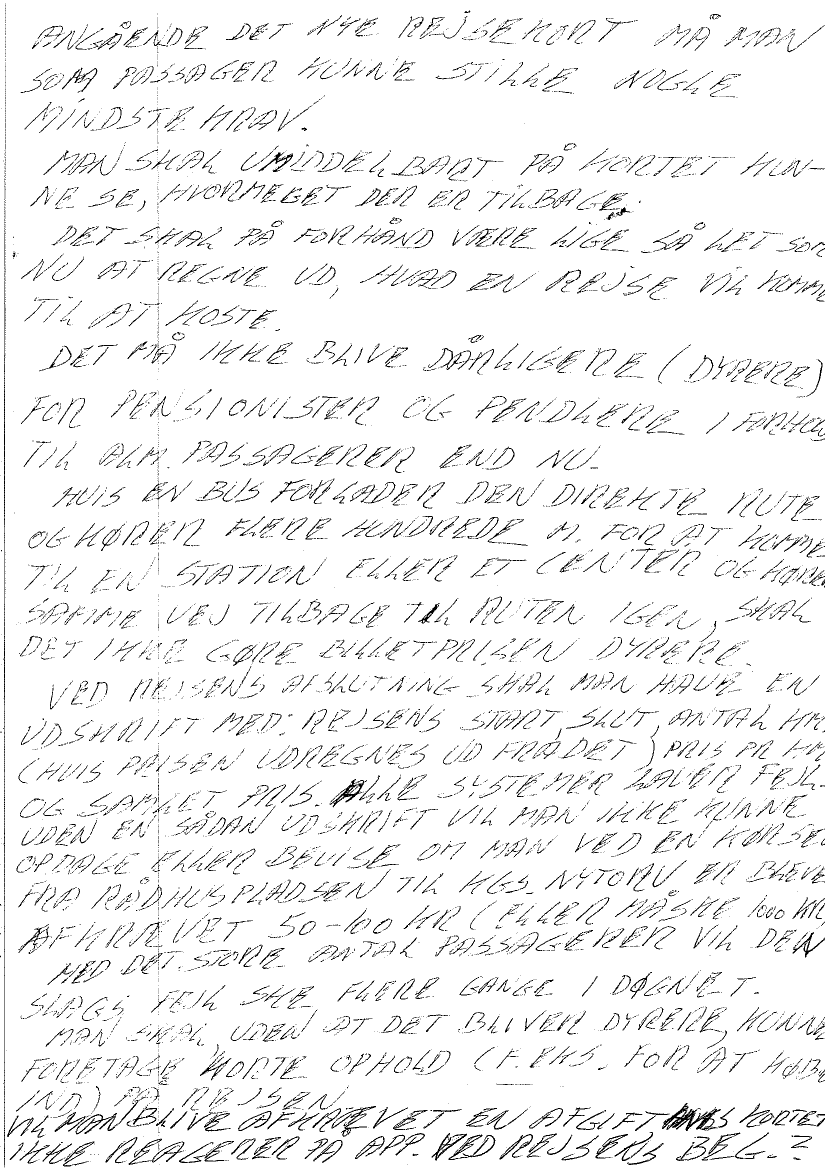 ANGÅENDE DET NYE REJSEKORT MÅ MAN
SOM PASSAGER KUNNE STILLE NOGLE
MINDSTEKRAV.
MAN SKAL UMIDDELBART PÅ KORTET KUN-
NE SE, HVORMEGET DER ER TILBAGE.
DET SKAL PÅ FORHÅND VÆRE LIGE SÅ LET SOM
NU AT REGNE UD, HVAD EN REJSE VIL KOMME
TIL AT KOSTE.
DET MÅ IKKE BLIVE DÅRLIGERE (DYRERE)
FOR PENSIONISTER OG PENDLERE I FORHOLD
TIL ALM. PASSAGERER END NU.
HVIS EN BUS FORLADER DEN DIREKTE RUTE
OG KØRER FLERE HUNDREDE M. FOR AT KOMME
TIL EN STATION ELLER ET CENTER OG KØRER
SAMME VEJ TILBAGE TIL RUTEN IGEN, SKAL
DET IKKE GØRE BILLETPRISEN DYRERE.
VED REJSENS AFSLUTNING SKAL MAN HAVE EN
UDSKRIFT MED: REJSENS START, SLUT, ANTAL KM.
(HVIS PRISEN UDREGNES UD FRA DET) PRIS PR KM
OG SAMLET PRIS. ALLE SYSTEMER LAVER FEJL.
UDEN EN SÅDAN UDSKRIFT VIL MAN IKKE KUNNE
OPDAGE ELLER BEVISE OM MAN VED EN KØRSEL
FRA RÅDHUSPLADSEN TIL KGS. NYTORV ER BLEVE
AFKRÆVET 50-100 KR (ELLER MÅSKE 1000 KR)
MED DET STORE ANTAL PASSAGERER VIL DEN
SLAGS FEJL SKE FLERE GANGE I DØGNET.
MAN SKAL, UDEN AT DET BLIVER DYRERE, KUNNE
FORETAGE KORTE OPHOLD (F.EKS. FOR AT KØBE
IND) PÅ REJSEN.
VIL MAN BLIVE AFKRÆVET EN AFGIFT HVIS KORTET
IKKE REAGERER PÅ APP. VED REJSENS BEG.?